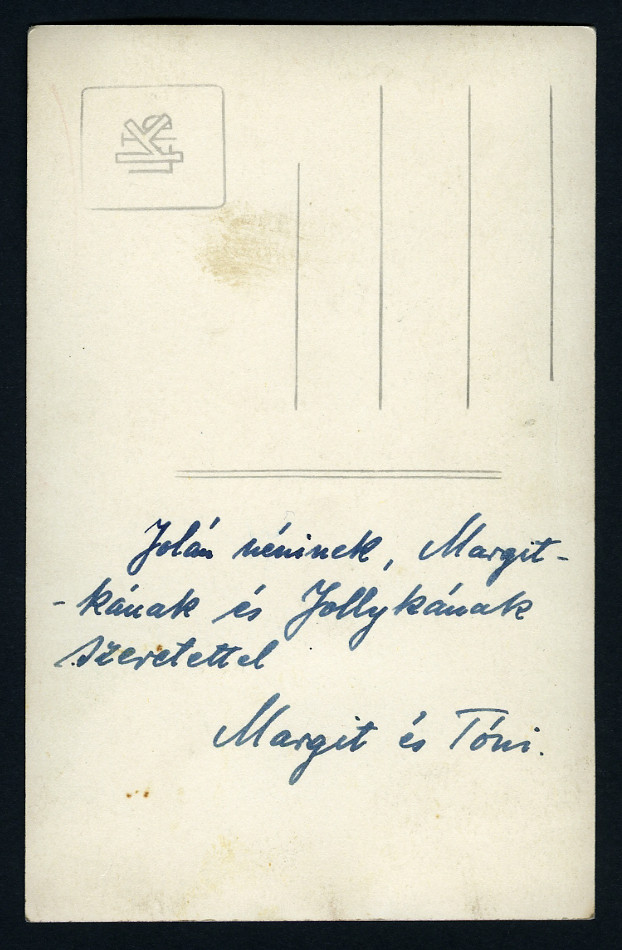 Jolán néninek, Margit-
-kának és Jollykának
szeretettel
Margit és Tóni.